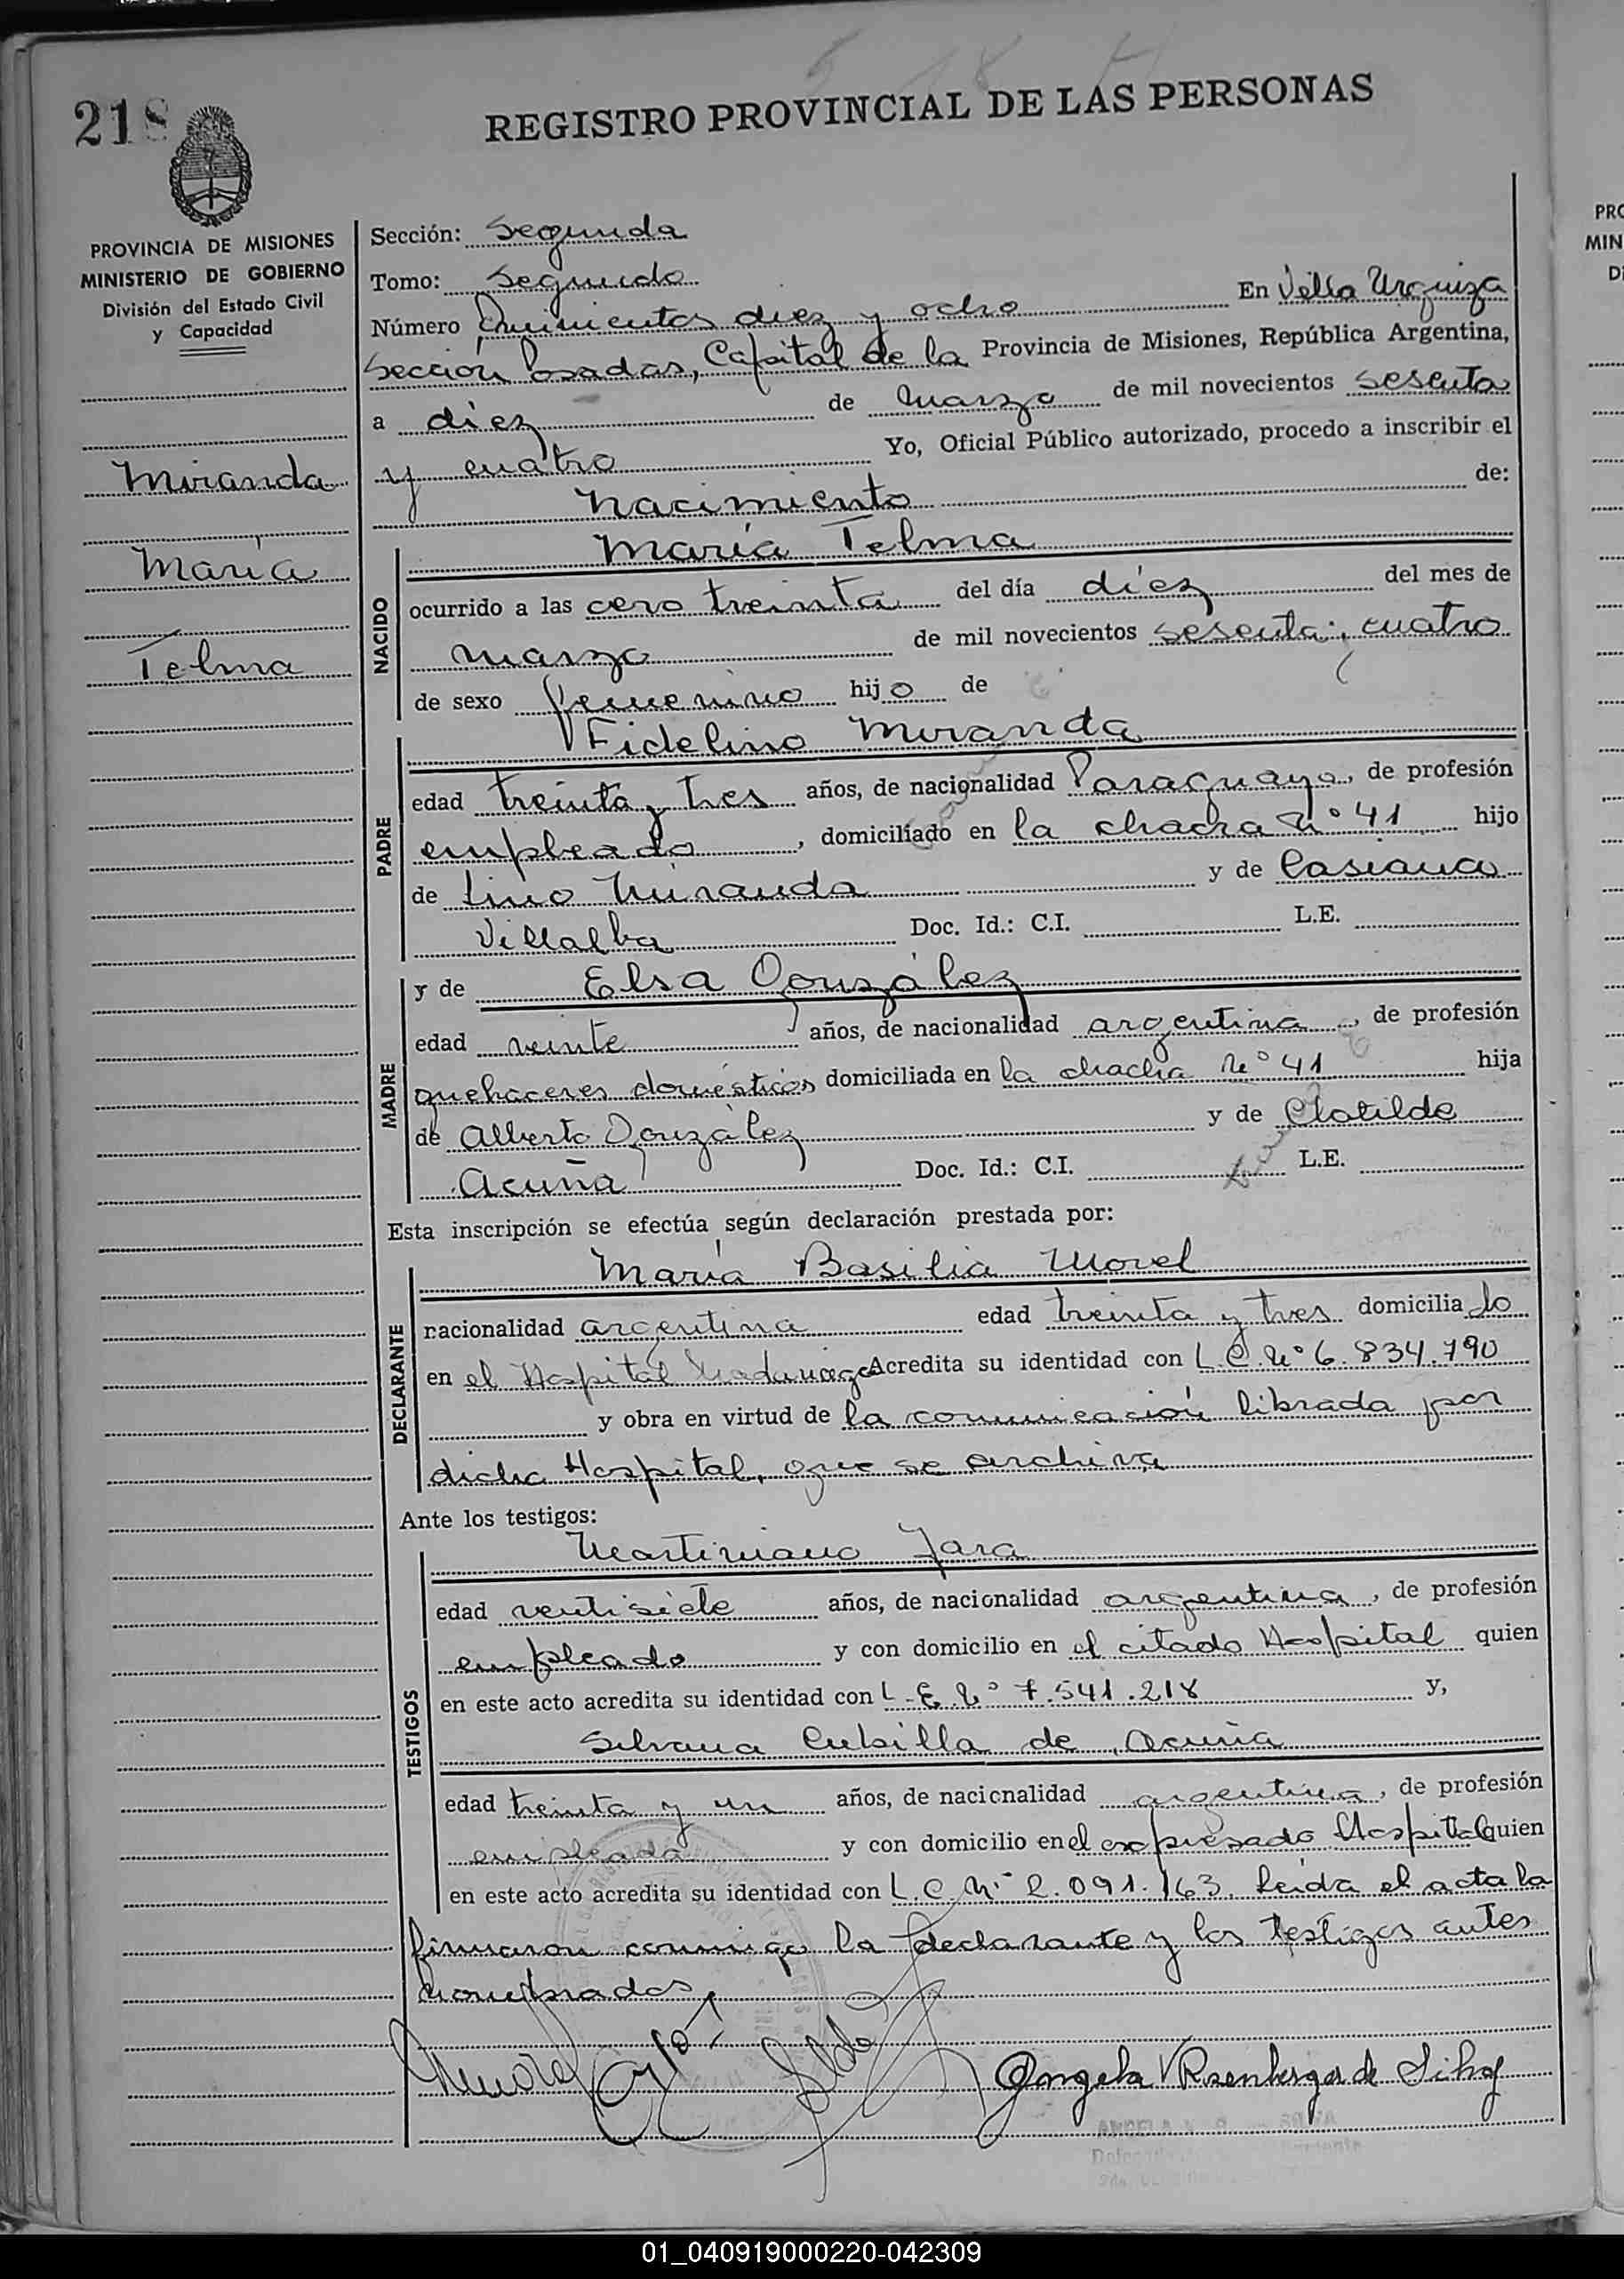 218
REGISTRO PROVINCIAL DE LAS PERSONAS
PROVINCIA DE MISIONES
MINISTERIO DE GOBIERNO
División del Estado Civil
y Capacidad
Miranda
María
Telma
Sección: Segunda
Tomo: Segundo
Número Quinientos diez y ocho En Villa Urquiza
Sección Posadas, Capital de la Provincia de Misiones, República Argentina,
a diez de marzo de mil novecientos sesenta
y cuatro Yo, Oficial Público autorizado, procedo a inscribir el
nacimiento de:
NACIDO
María Telma
ocurrido a las cero treinta del día diez del mes de
marzo de mil novecientos sesenta y cuatro
de sexo femenino hijo de
PADRE
Fidelino Miranda
edad treinta y tres años, de nacionalidad Paraguaya, de profesión
empleado, domiciliado en la chacra Nº 41 hijo
de Lino Miranda y de Casiana
Villalba Doc. Id.: C.I. L.E.
MADRE
y de Elsa González
edad veinte años, de nacionalidad argentina, de profesión
quehaceres domésticos domiciliada en la chacra Nº 41 hija
de Alberto González y de Clotilde
Acuña Doc. Id.: C.I. L.E.
Esta inscripción se efectúa según declaración prestada por:
DECLARANTE
María Basilia Morel
racionalidad argentina edad treinta y tres domiciliado
en el Hospital Madariaga Acredita su identidad con L.C. Nº 6.834.790
y obra en virtud de la comunicación librada por
dicho Hospital, que se archiva
Ante los testigos:
TESTIGOS
Martiniano Jara
edad ventisiete años, de nacionalidad argentina, de profesión
empleado y con domicilio en el citado Hospital quien
en este acto acredita su identidad con L.E. Nº 7.541.218 y,
Silvana Cubilla de Acuña
edad treinta y un años, de nacionalidad argentina, de profesión
empleada y con domicilio en el expresado Hospital quien
en este acto acredita su identidad con L.C. Nº 2.091.163. Leída el acta la
firmaron conmigo la declarante y los testigos antes
nombrados.
Angela V Rosenberger de Silva
01_040919000220-042309